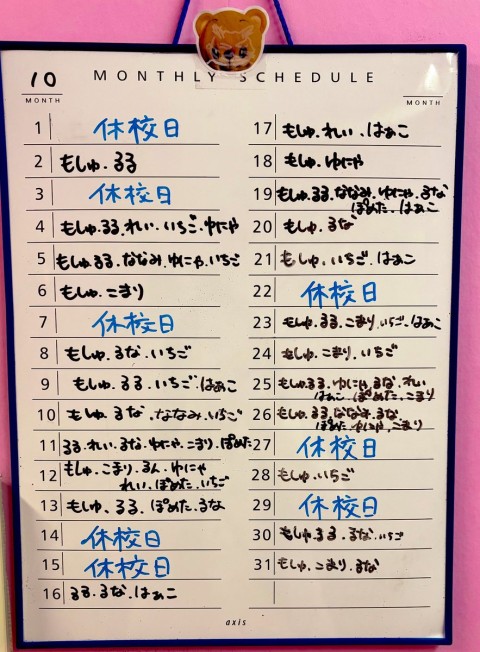 10 MONTHLY SCHEDULE
MONTH MONTH
1 休校日
2 もしゅ.るる
3 休校日
4 もしゅ.るる.れい.いちご.ゆにゃ
5 もしゅ.るる.ななみ.ゆにゃ.いちご
6 もしゅ.こまり
7 休校日
8 もしゅ.るな.いちご
9 もしゅ.るる.いちご.はぁこ
10 もしゅ.るな.ななみ.いちご
11 るる.れい.るな.ゆにゃ.こまり.ぽめた
12 もしゅ.こまり.るん.ゆにゃ
れい.ぽめた.いちご
13 もしゅ.るる.ぽめた.るな
14 休校日
15 休校日
16 るる.るな.はぁこ
17 もしゅ.れい.はぁこ
18 もしゅ.ゆにゃ
19 もしゅ.るる.ななみ.ゆにゃ.るな
ぽめた.はぁこ
20 もしゅ.るな
21 もしゅ.いちご.はぁこ
22 休校日
23 もしゅ.るる.こまり.いちご.はぁこ
24 もしゅ.こまり.いちご
25 もしゅ.るる.ゆにゃ.るな.れい
はぁこ.ぽめた.こまり
26 もしゅ.るる.ななみ.るな.
ぽめた.ゆにゃ.こまり
27 休校日
28 もしゅ.いちご
29 休校日
30 もしゅ.るる.るな.いちご
31 もしゅ.こまり.るな
axis